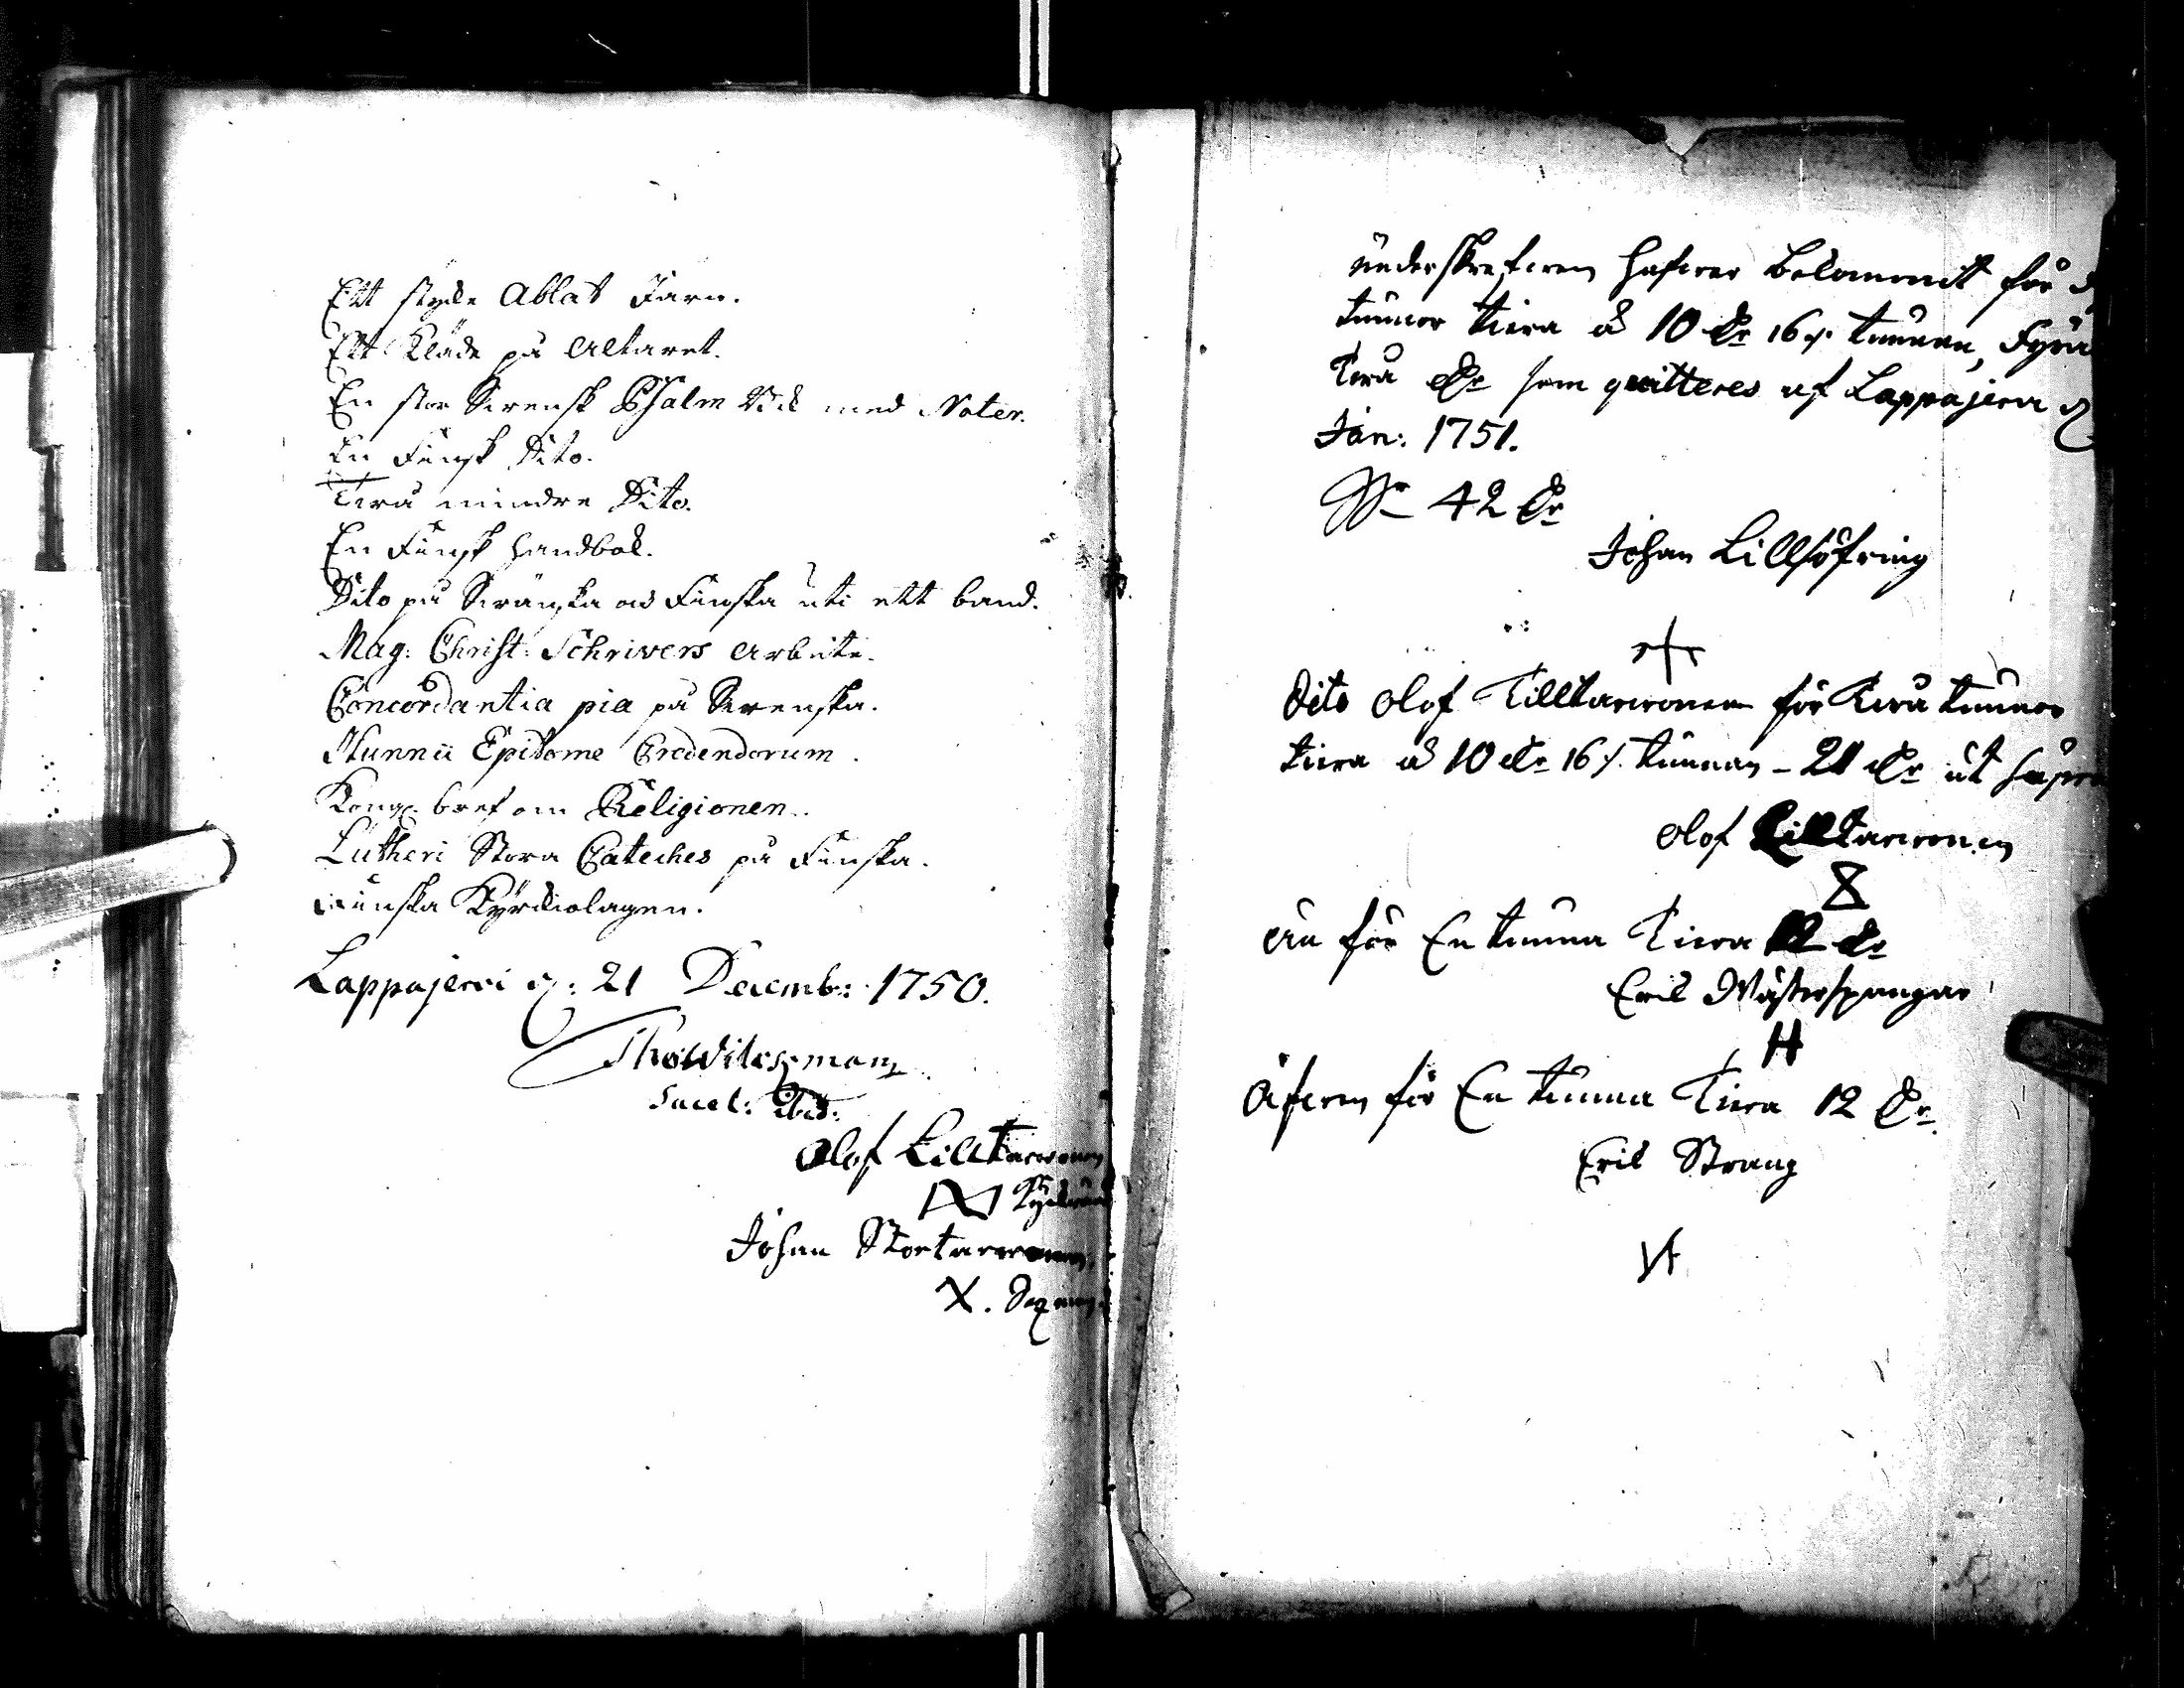 Ett stycke Ablat Jarn.
Ett Kläde på Altaret.
En stor Svensk Psalm Bok med Noter.
En Finsk Dito.
Två mindre Dito.
En Finsk Handbok.
Dito på Svänska och Finska uti ett band.
Mag: Christ: Schrivers Arbete.
Concordantia pia på Svenska.
Hunnii Epitome Credendorum.
Kong: bref om Religionen.
Lutheri Stora Cateches på Finska.
Finska Kyrckiolagen.
Lappajervi d: 21 Decemb: 1750.
Tho Witeszman
Sacel: Ibid:
Olof Lilltarvonen
Johan Stortarvonen
X.
Underskrefven hafver bekommit för
tunnor tiera à 10 Dr 16 s. tunnan, Fyra
Två Dr som quitteres af Lappajervi d
Jan: 1751.
Sr 42 Dr
Johan Lillsöfring
Dito Olof Lilltarvonen för Två tunnor
tiera à 10 Dr 16 s. tunnan - 21 Dr ut
Olof Lilltarvonen
för En tunna Tiera 12 Dr
Eric Wästerspangar
H
Äfven för En tunna Tiera 12 Dr
Eric Strang